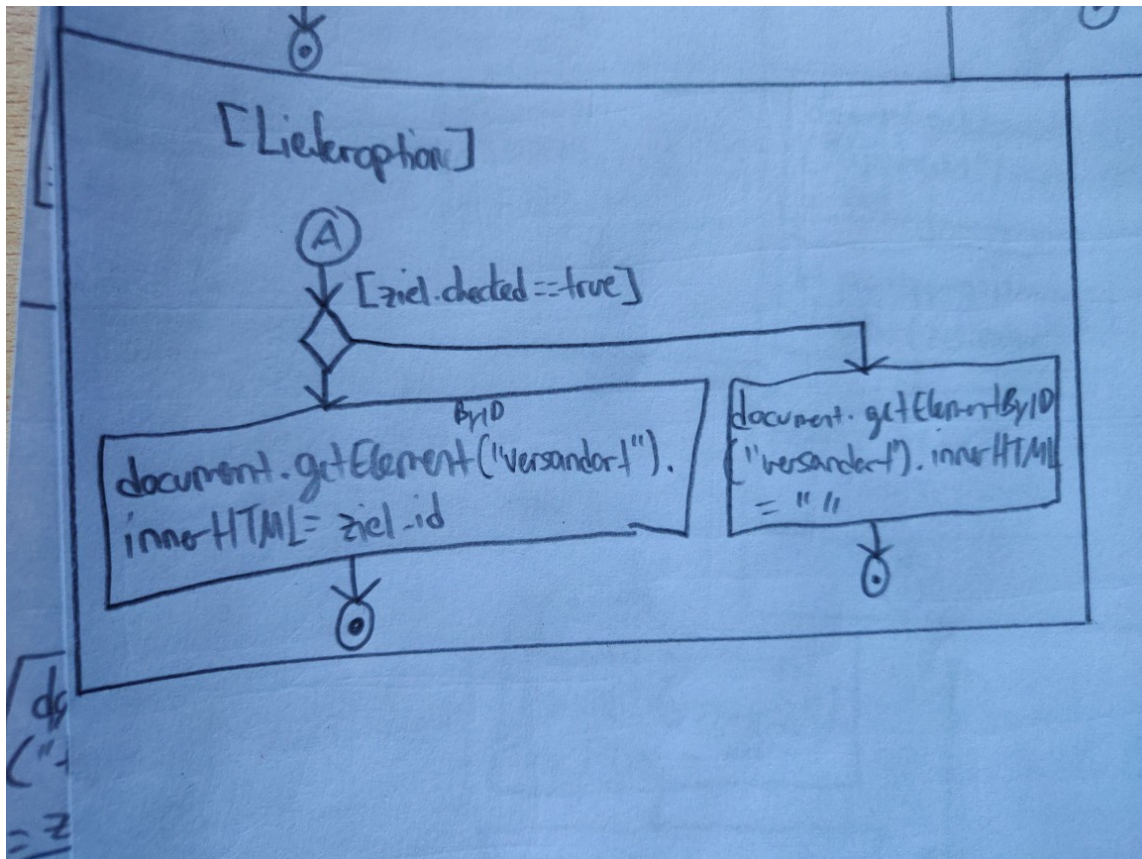 [Lieferoption]
A
[ziel.checked==true]
ByID
document.getElement("versandort").
innerHTML= ziel.id
document.getElementByID
("versandort").innerHTML
= " "
= z